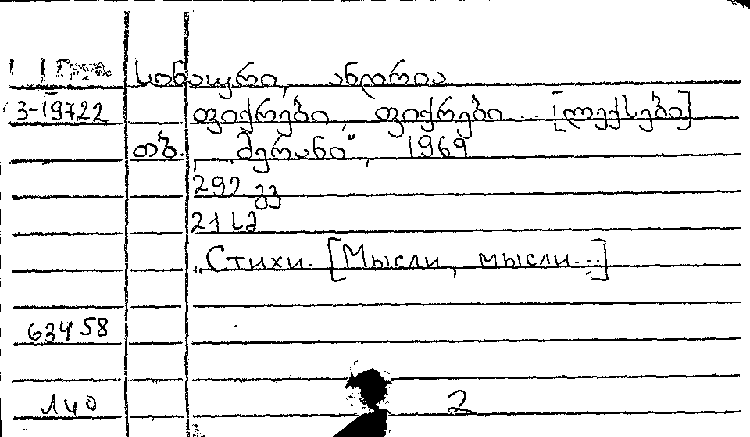 Груз. სინაური, ანდრია
3-19722 ფიქრები, ფიქრები... [ლექსები]
თბ. „მერანი“, 1969
292 გვ
21 სმ
„Стихи. [Мысли, мысли...]
63458
140 2